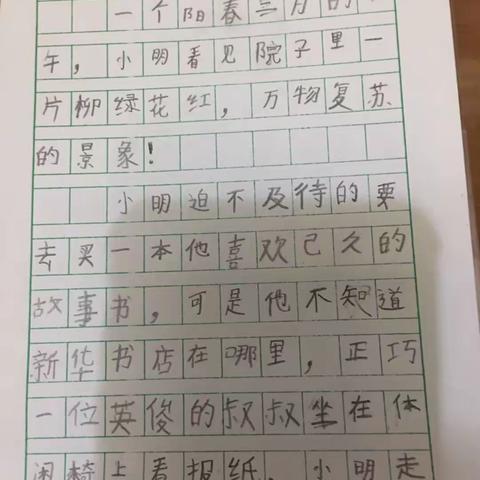 一个阳春三月的
午，小明看见院子里一
片柳绿花红，万物复苏
的景象！
小明迫不及待的要
去买一本他喜欢已久的
故事书，可是他不知道
新华书店在哪里，正巧
一位英俊的叔叔坐在休
闲椅上看报纸，小明走